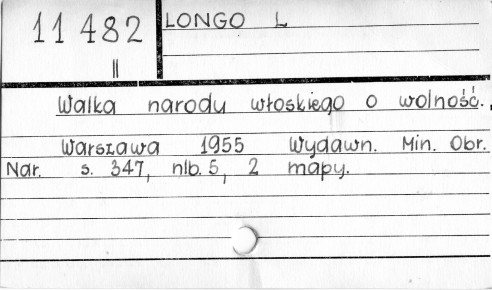 11 482
II
LONGO L
Walka narodu włoskiego o wolność.,
Warszawa 1955 Wydawn. Min. Obr.
Nar. s. 347, nlb. 5, 2 mapy.